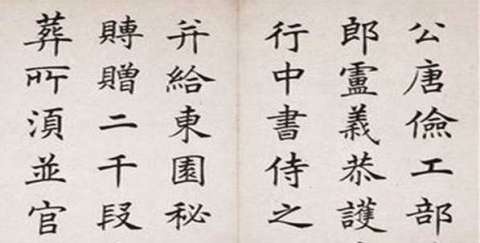 公唐儉工部
郎盧義恭護
行中書侍之
并給東園秘
賻贈二千段
葬所湏並官